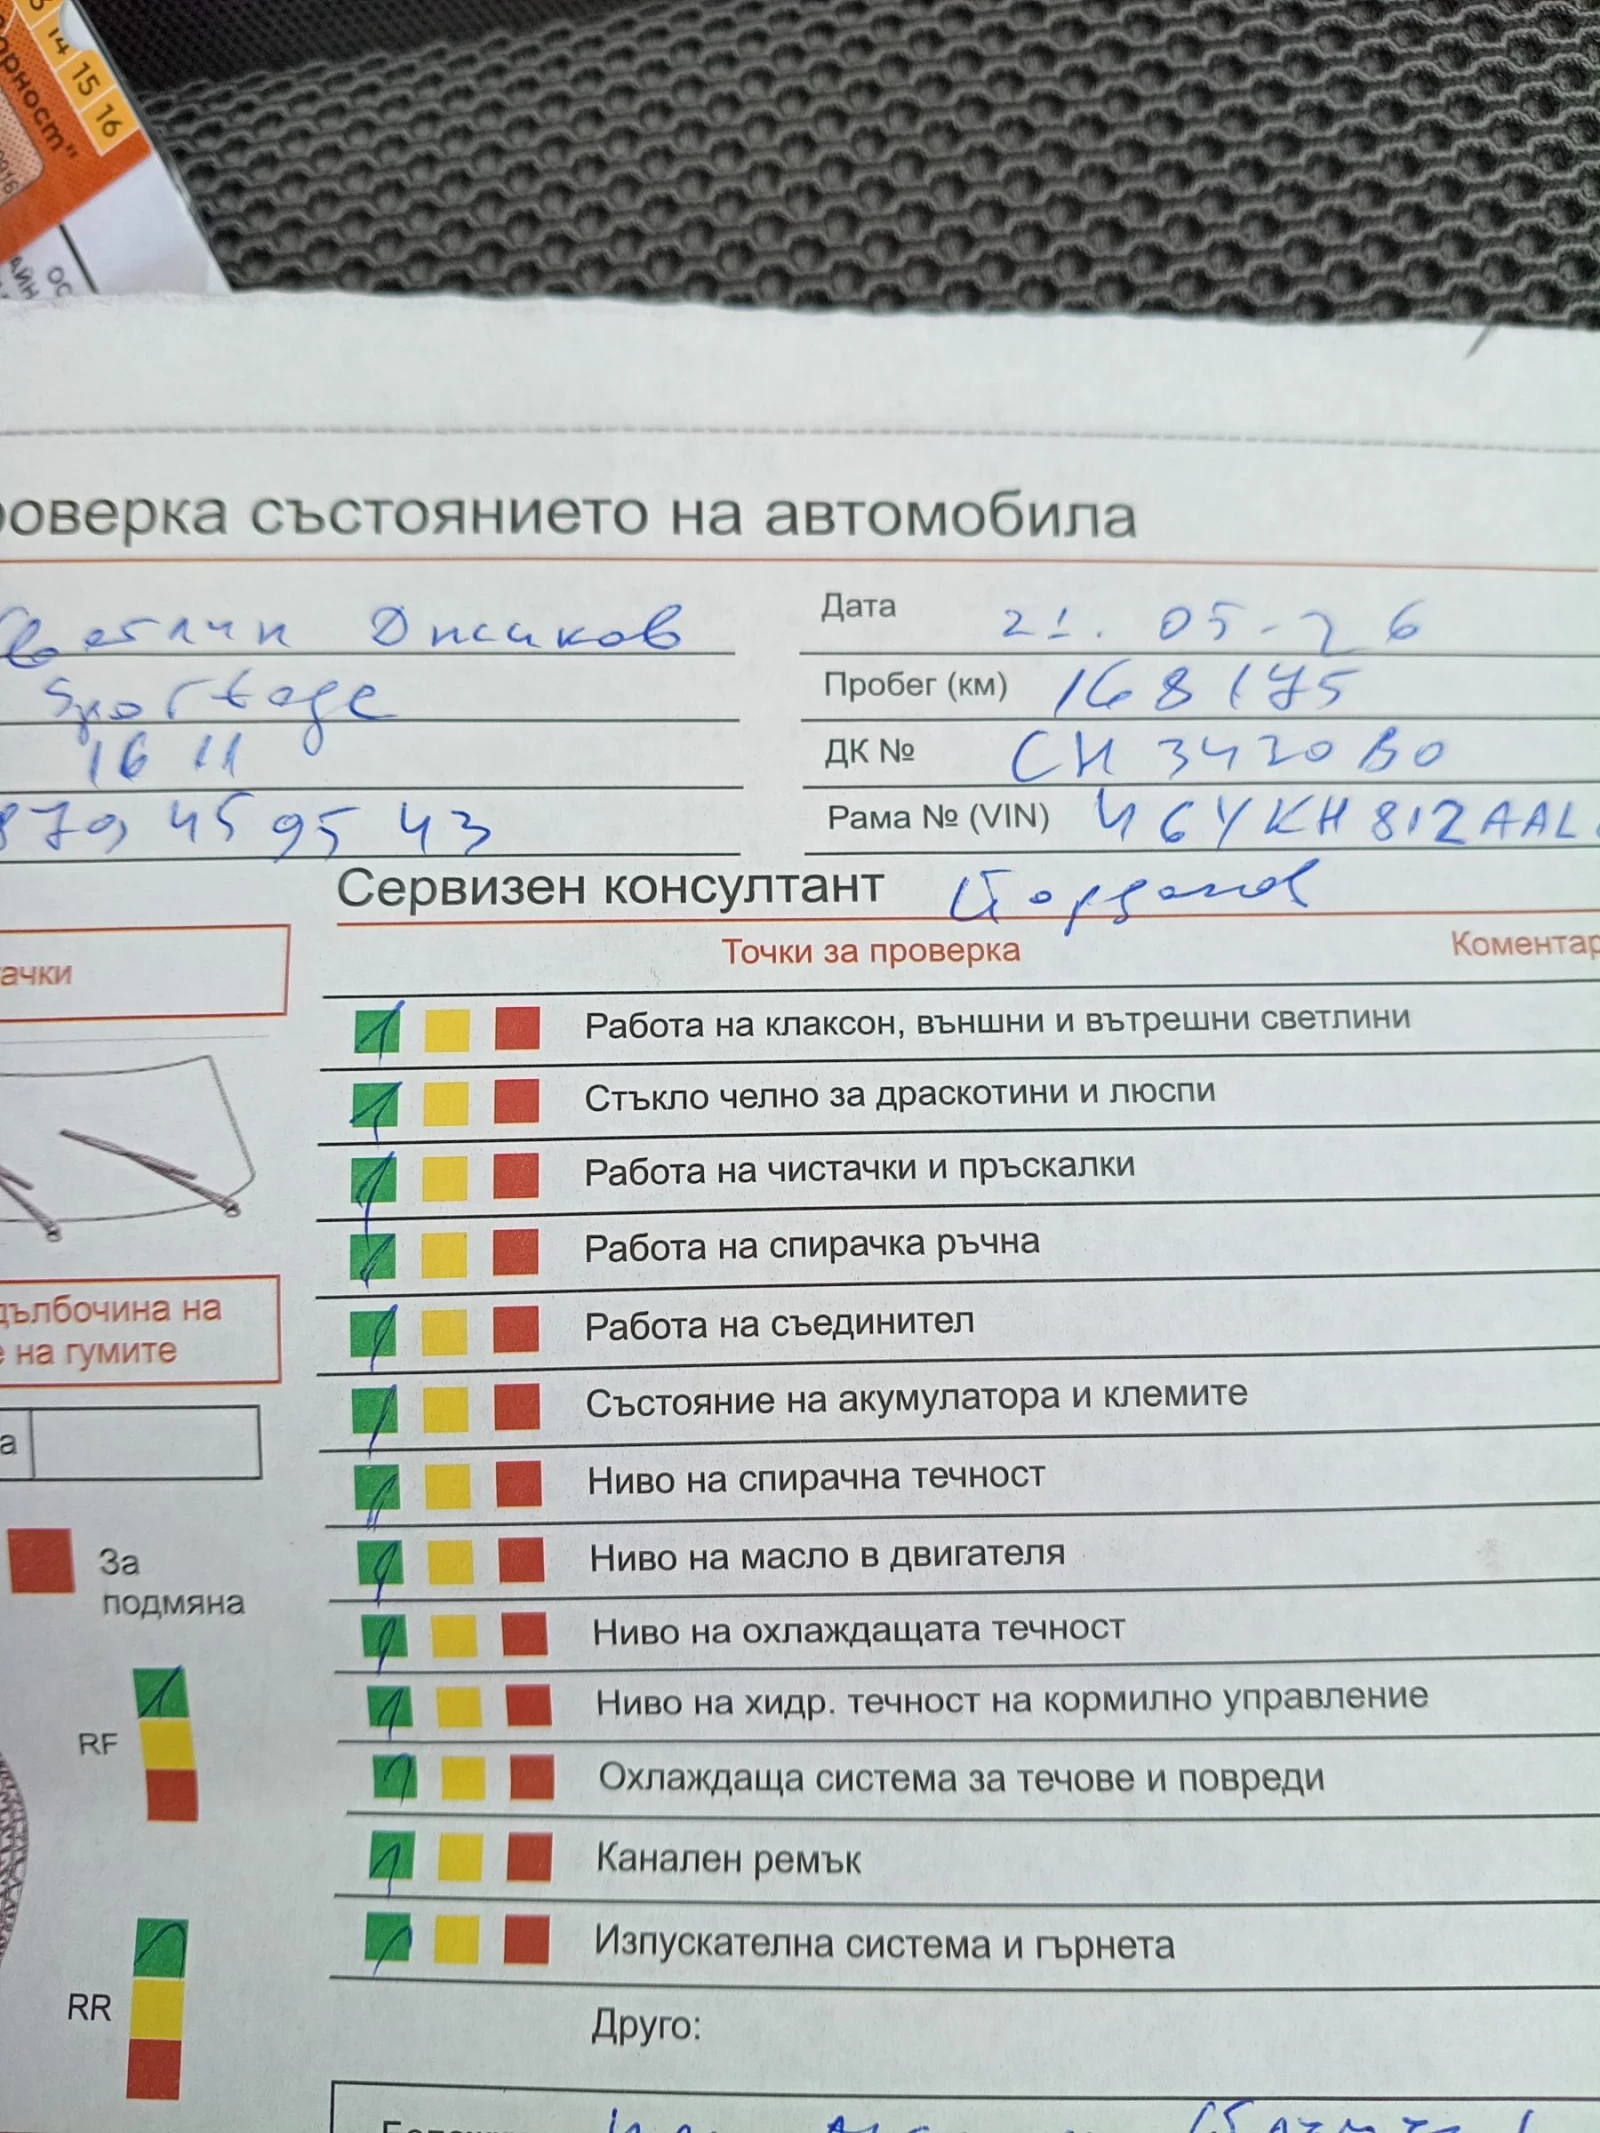 14
15
16
рност"
роверка състоянието на автомобила
Светлин Дисиков
Дата 21.05-26
Sportage
Пробег (км) 168175
16 11
ДК № СН 3420 ВО
879 45 95 43
Рама № (VIN) У6УКН812AAL
Сервизен консултант Йорданов
ачки
Точки за проверка
Коментар
Работа на клаксон, външни и вътрешни светлини
Стъкло челно за драскотини и люспи
Работа на чистачки и пръскалки
Работа на спирачка ръчна
дълбочина на
е на гумите
Работа на съединител
Състояние на акумулатора и клемите
а
Ниво на спирачна течност
Ниво на масло в двигателя
За
подмяна
Ниво на охлаждащата течност
Ниво на хидр. течност на кормилно управление
RF
Охлаждаща система за течове и повреди
Канален ремък
Изпускателна система и гърнета
RR
Друго: